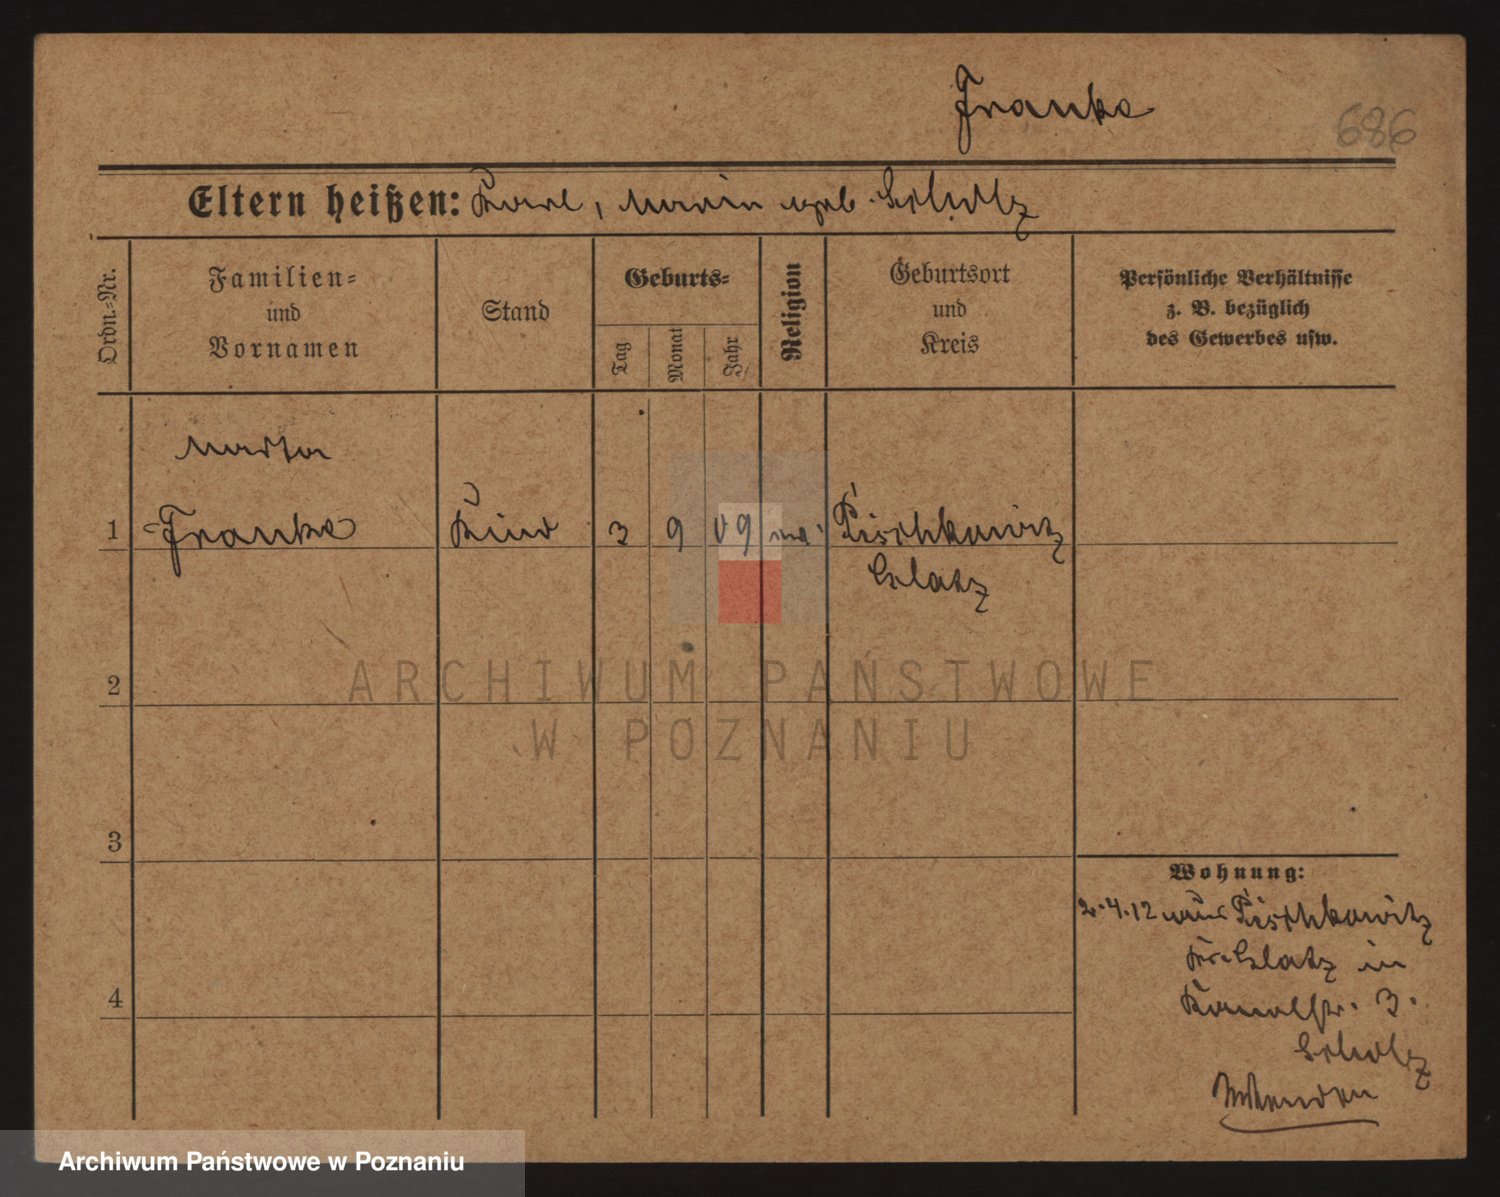 Franke
686
Eltern heißen: Karl, Maria geb. Scholz
Ordn.-Nr.
Familien-
und
Vornamen
Stand
Geburts-
Tag
Monat
Jahr
Religion
Geburtsort
und
Kreis
Persönliche Verhältnisse
z. B. bezüglich
des Gewerbes usw.
Marta
1 Franke Kind 3 9 09 Pischkowitz
Glatz
2
3
4
Wohnung:
2.4.12 aus Pischkowitz
Kr. Glatz in
Kanalstr. 3.
Scholz
ARCHIWUM PAŃSTWOWE
W POZNANIU
Archiwum Państwowe w Poznaniu